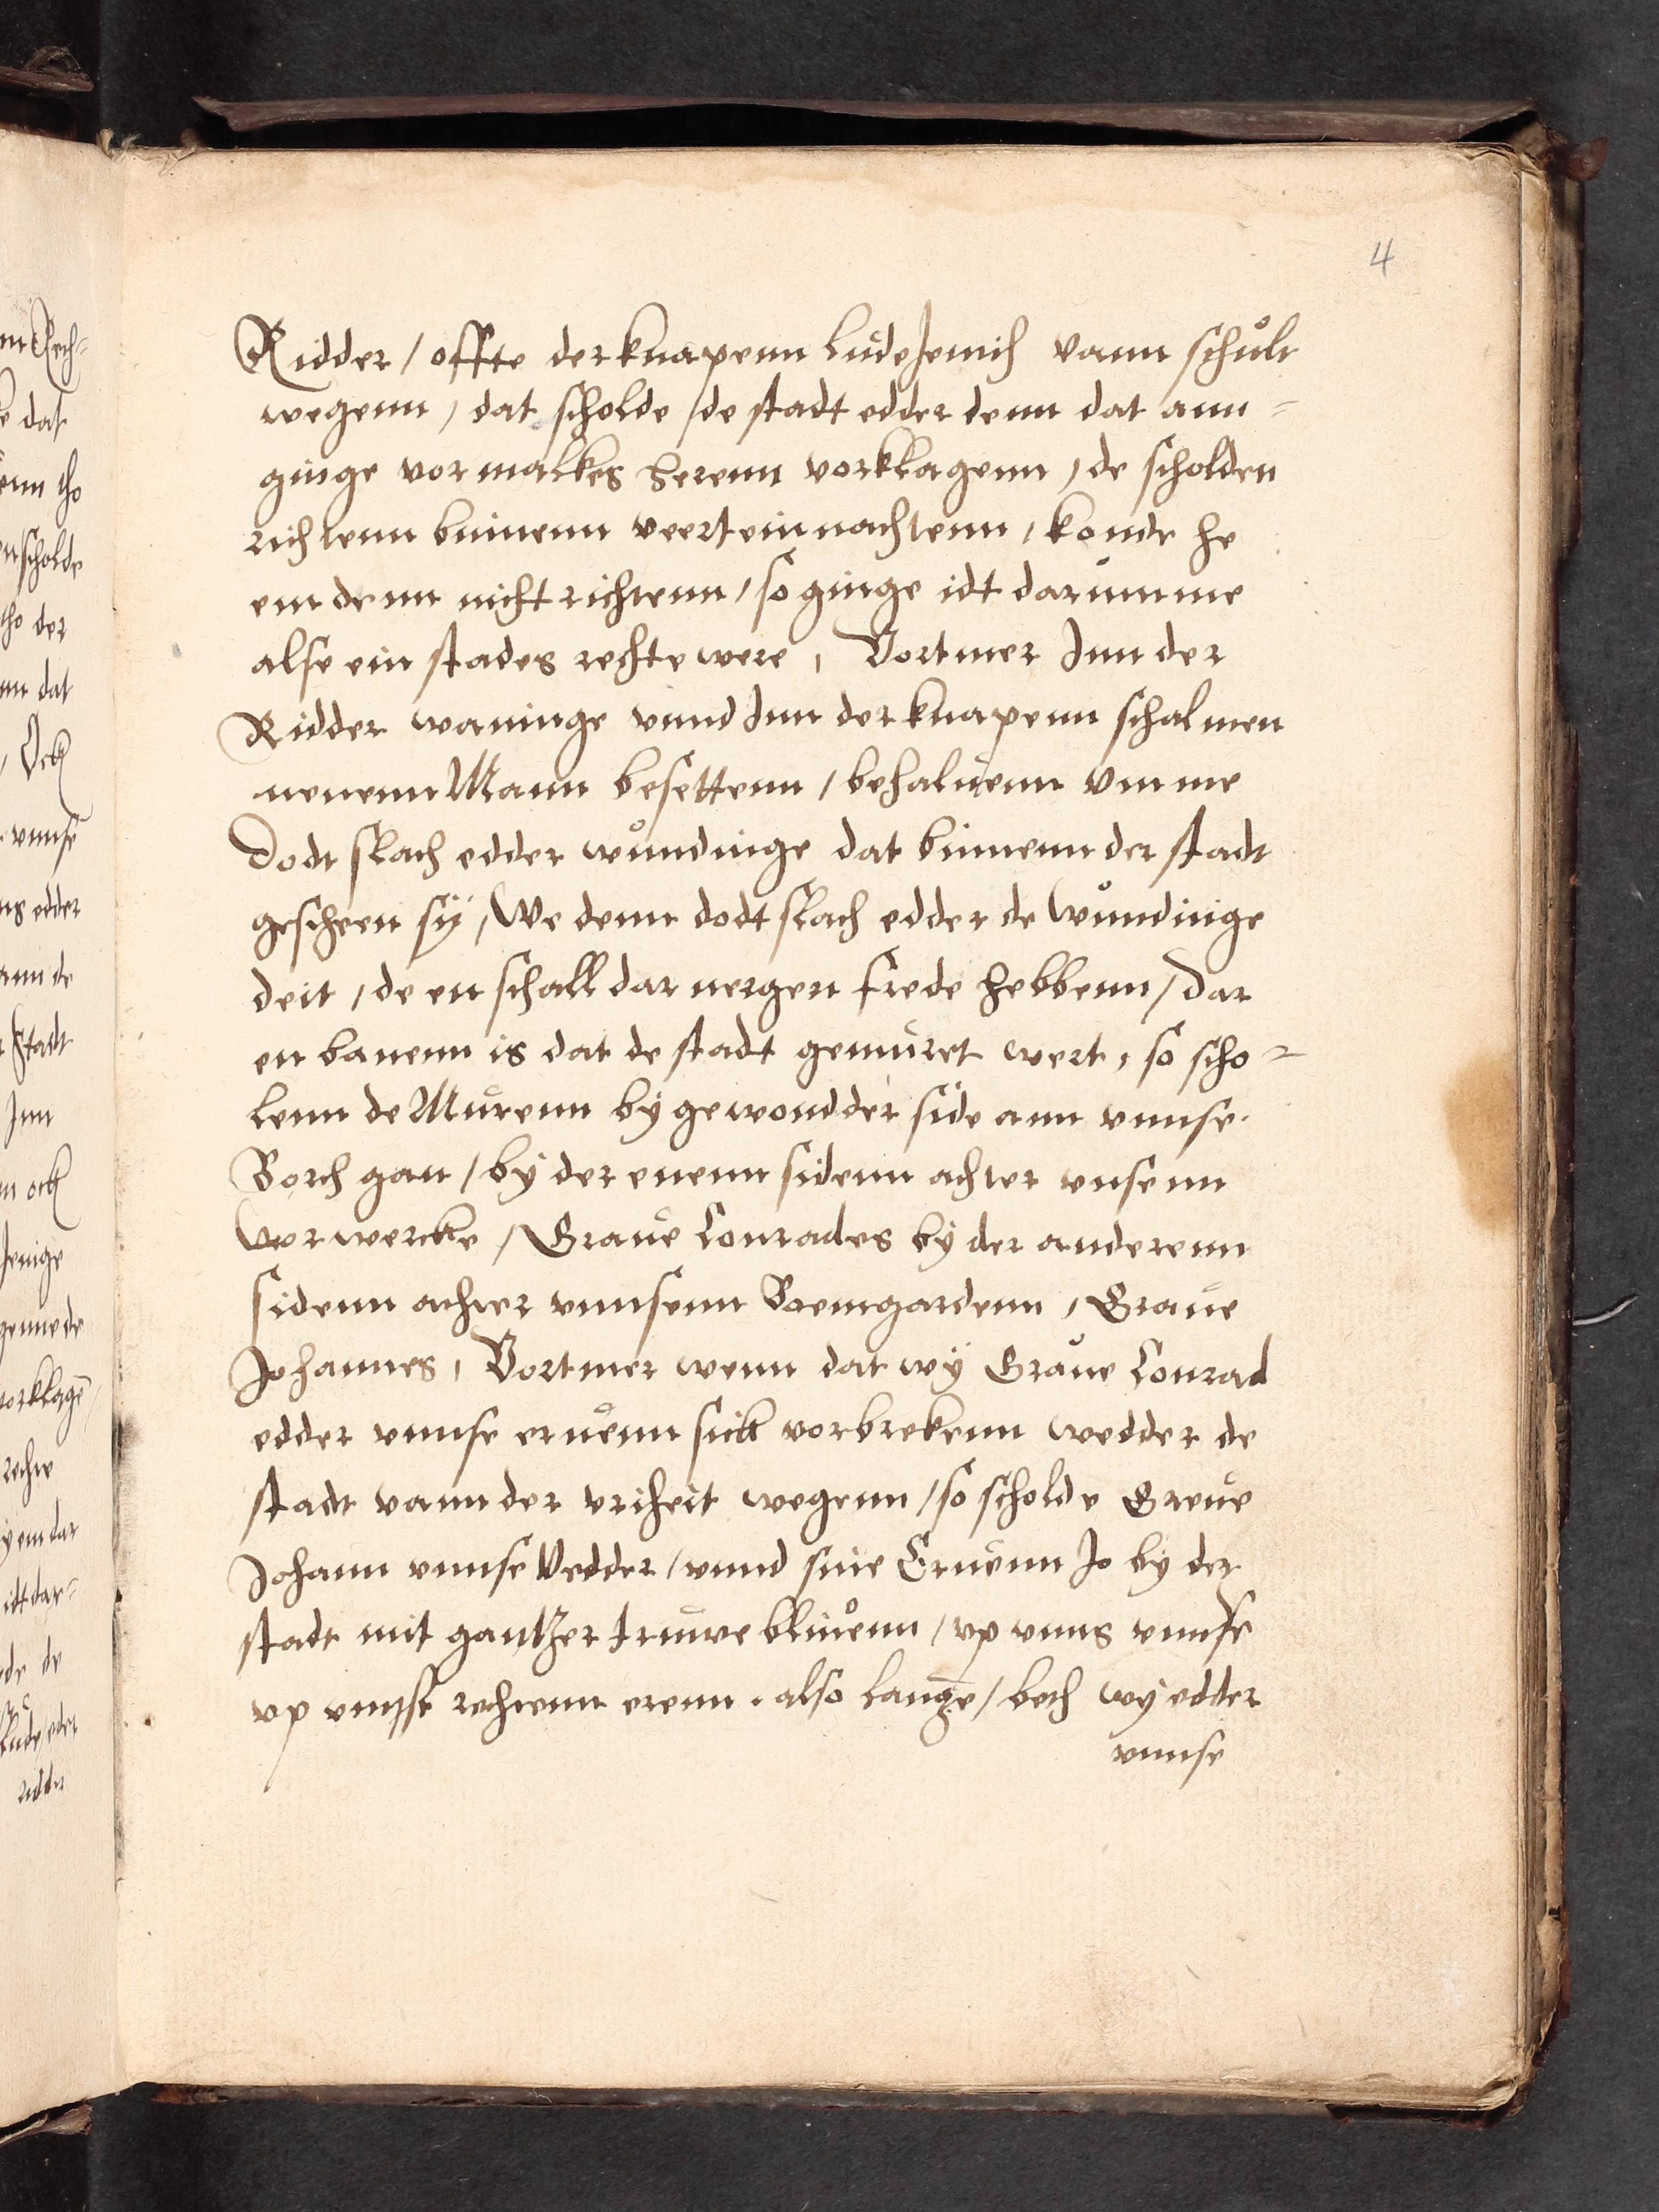 4
Ridder / offte der knapenn lude Jemich vann schult
wegenn, dat scholde / de stadt edder denn dat ann=
ginge vor malkes herenn vorklagenn, de scholden
richtenn binnenn veertein nachtenn, konde he
em denn nicht richtenn, so ginge idt darumme
alse ein stades rechte were, Vortmer Inn der
Ridder waninge vnnd Inn der knapenn schal men
nenenn Mann besettenn, behaluenn vmme
Dodt slach edder wundinge dat binnenn der stadt
gescheen sÿ, We denn dodt slach edder de wundinge
deit, de en schall dar nergen frede hebbenn, Dar
en bauenn is dat de stadt gemuret wert, so scho=
lenn de Murenn bÿ gewondder side ann vnnse
Borch gan, bÿ der enenn sidenn achter vnsenn
Vorwercke, Graue Conrades bÿ der anderenn
sidenn achter vnnsenn Bomgardenn, Graue
Johannes, Vortmer wenn dat wÿ Graue Conrad
edder vnnse eruenn sick vorbrekenn wedder de
stadt vann der vriheit wegenn, so scholde Greue
Johann vnnse Vedder, vnnd sine Eruenn Jo bÿ der
stadt mit gantzer truwe bliuenn, vp vnns vnnse
vp vnnse rechtenn erenn. also lange, beth wÿ edder
vnnse